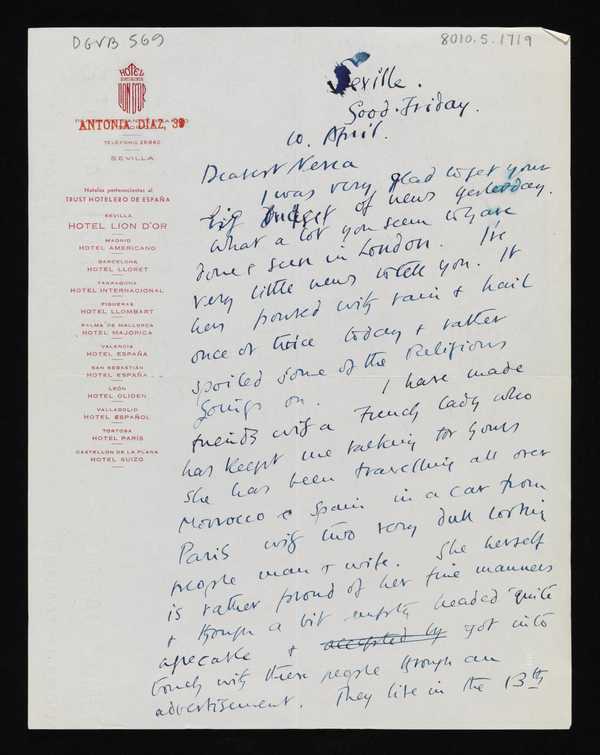 DGVB 569
8010.5.1719
HOTEL
LION D'OR
ANTONIA DIAZ, 39
TELÉFONO 25860
SEVILLA
Hoteles pertenecientes al
TRUST HOTELERO DE ESPAÑA
SEVILLA
HOTEL LION D'OR
MADRID
HOTEL AMERICANO
BARCELONA
HOTEL LLORET
TARRAGONA
HOTEL INTERNACIONAL
FIGUERAS
HOTEL LLOMBART
PALMA DE MALLORCA
HOTEL MAJORICA
VALENCIA
HOTEL ESPAÑA
SAN SEBASTIÁN
HOTEL ESPAÑA
LEÓN
HOTEL OLIDEN
VALLADOLID
HOTEL ESPAÑOL
TORTOSA
HOTEL PARÍS
CASTELLÓN DE LA PLANA
HOTEL SUIZO
Seville.
Good. Friday.
10. April.
Dearest Nessa
I was very glad to get your
big budget of news yesterday.
What a lot you seem to have
done & seen in London. I've
very little news to tell you. It
has poured with rain & hail
once or twice today & rather
spoiled some of the Religious
goings on. I have made
friends with a French lady who
has keept me talking for hours
She has been travelling all over
Morrocco & Spain in a car from
Paris with two very dull looking
people man & wife. She herself
is rather proud of her fine manners
& though a bit empty headed quite
agreable & accepted by got into
touch with these people through an
advertisement. They live in the 13th